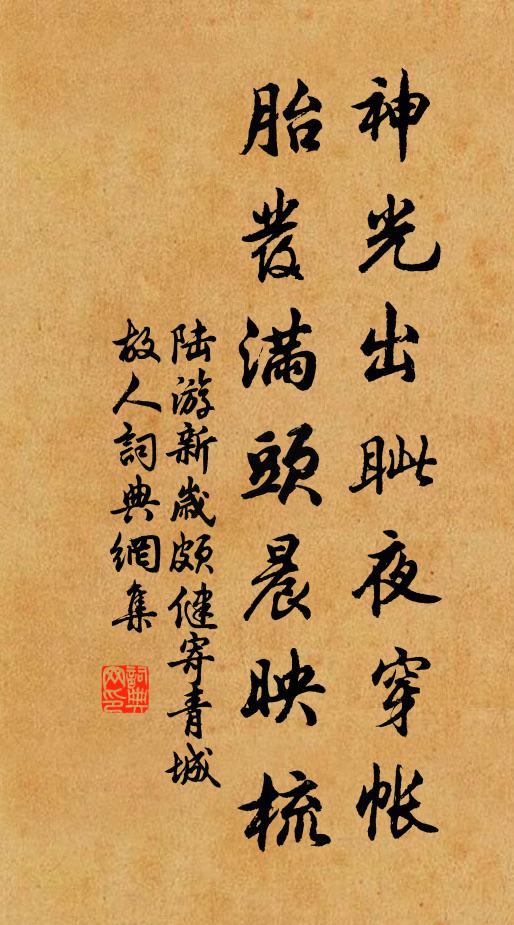 神光出眦夜穿帐
胎发满头晨映梳
陆游新歲颇健寄青城
故人詞典網集
詞典
网印